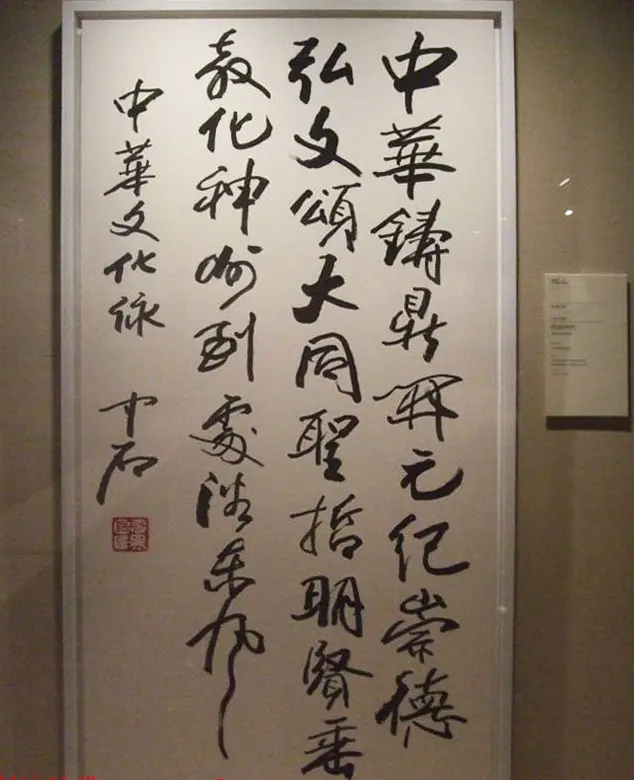 中華鑄鼎開元紀崇德
弘文頌大同聖哲明賢垂
教化神州到處沐東風
中華文化詠 中石